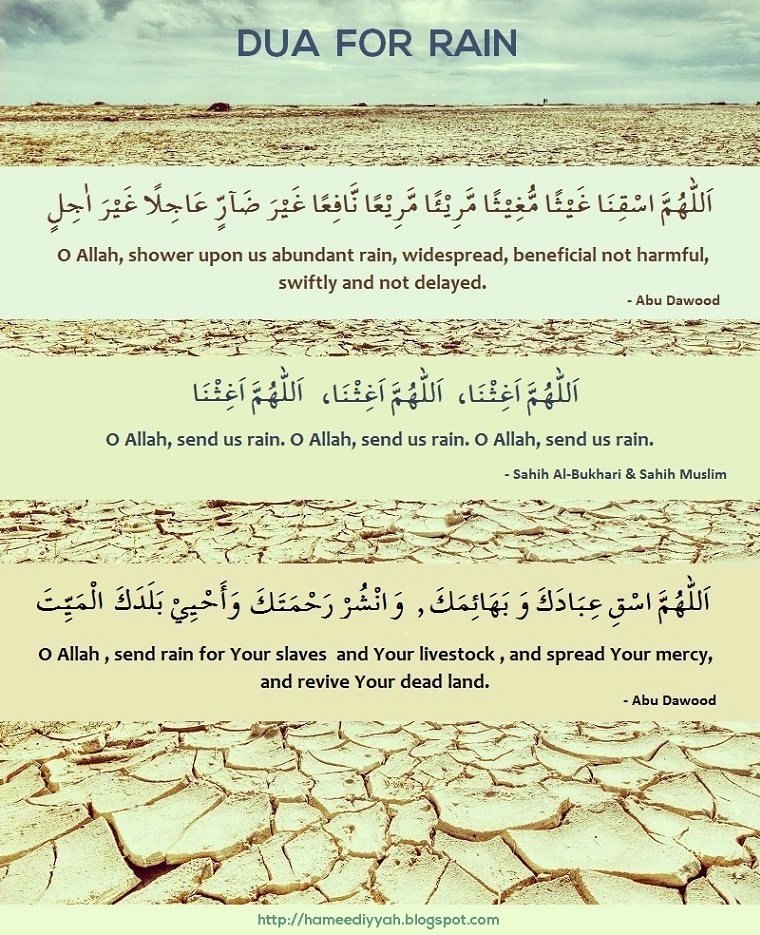 DUA FOR RAIN
اَللّٰهُمَّ اسْقِنَا غَيْثًا مُّغِيْثًا مَّرِيْئًا مَّرِيْعًا نَّافِعًا غَيْرَ ضَآرٍّ عَاجِلًا غَيْرَ اٰجِلٍ
O Allah, shower upon us abundant rain, widespread, beneficial not harmful,
swiftly and not delayed.
- Abu Dawood
اَللّٰهُمَّ اَغِثْنَا، اَللّٰهُمَّ اَغِثْنَا، اَللّٰهُمَّ اَغِثْنَا
O Allah, send us rain. O Allah, send us rain. O Allah, send us rain.
- Sahih Al-Bukhari & Sahih Muslim
اَللّٰهُمَّ اسْقِ عِبَادَكَ وَ بَهَائِمَكَ , وَانْشُرْ رَحْمَتَكَ وَأَحْيِيْ بَلَدَكَ الْمَيِّتَ
O Allah , send rain for Your slaves and Your livestock , and spread Your mercy,
and revive Your dead land.
- Abu Dawood
http://hameediyyah.blogspot.com